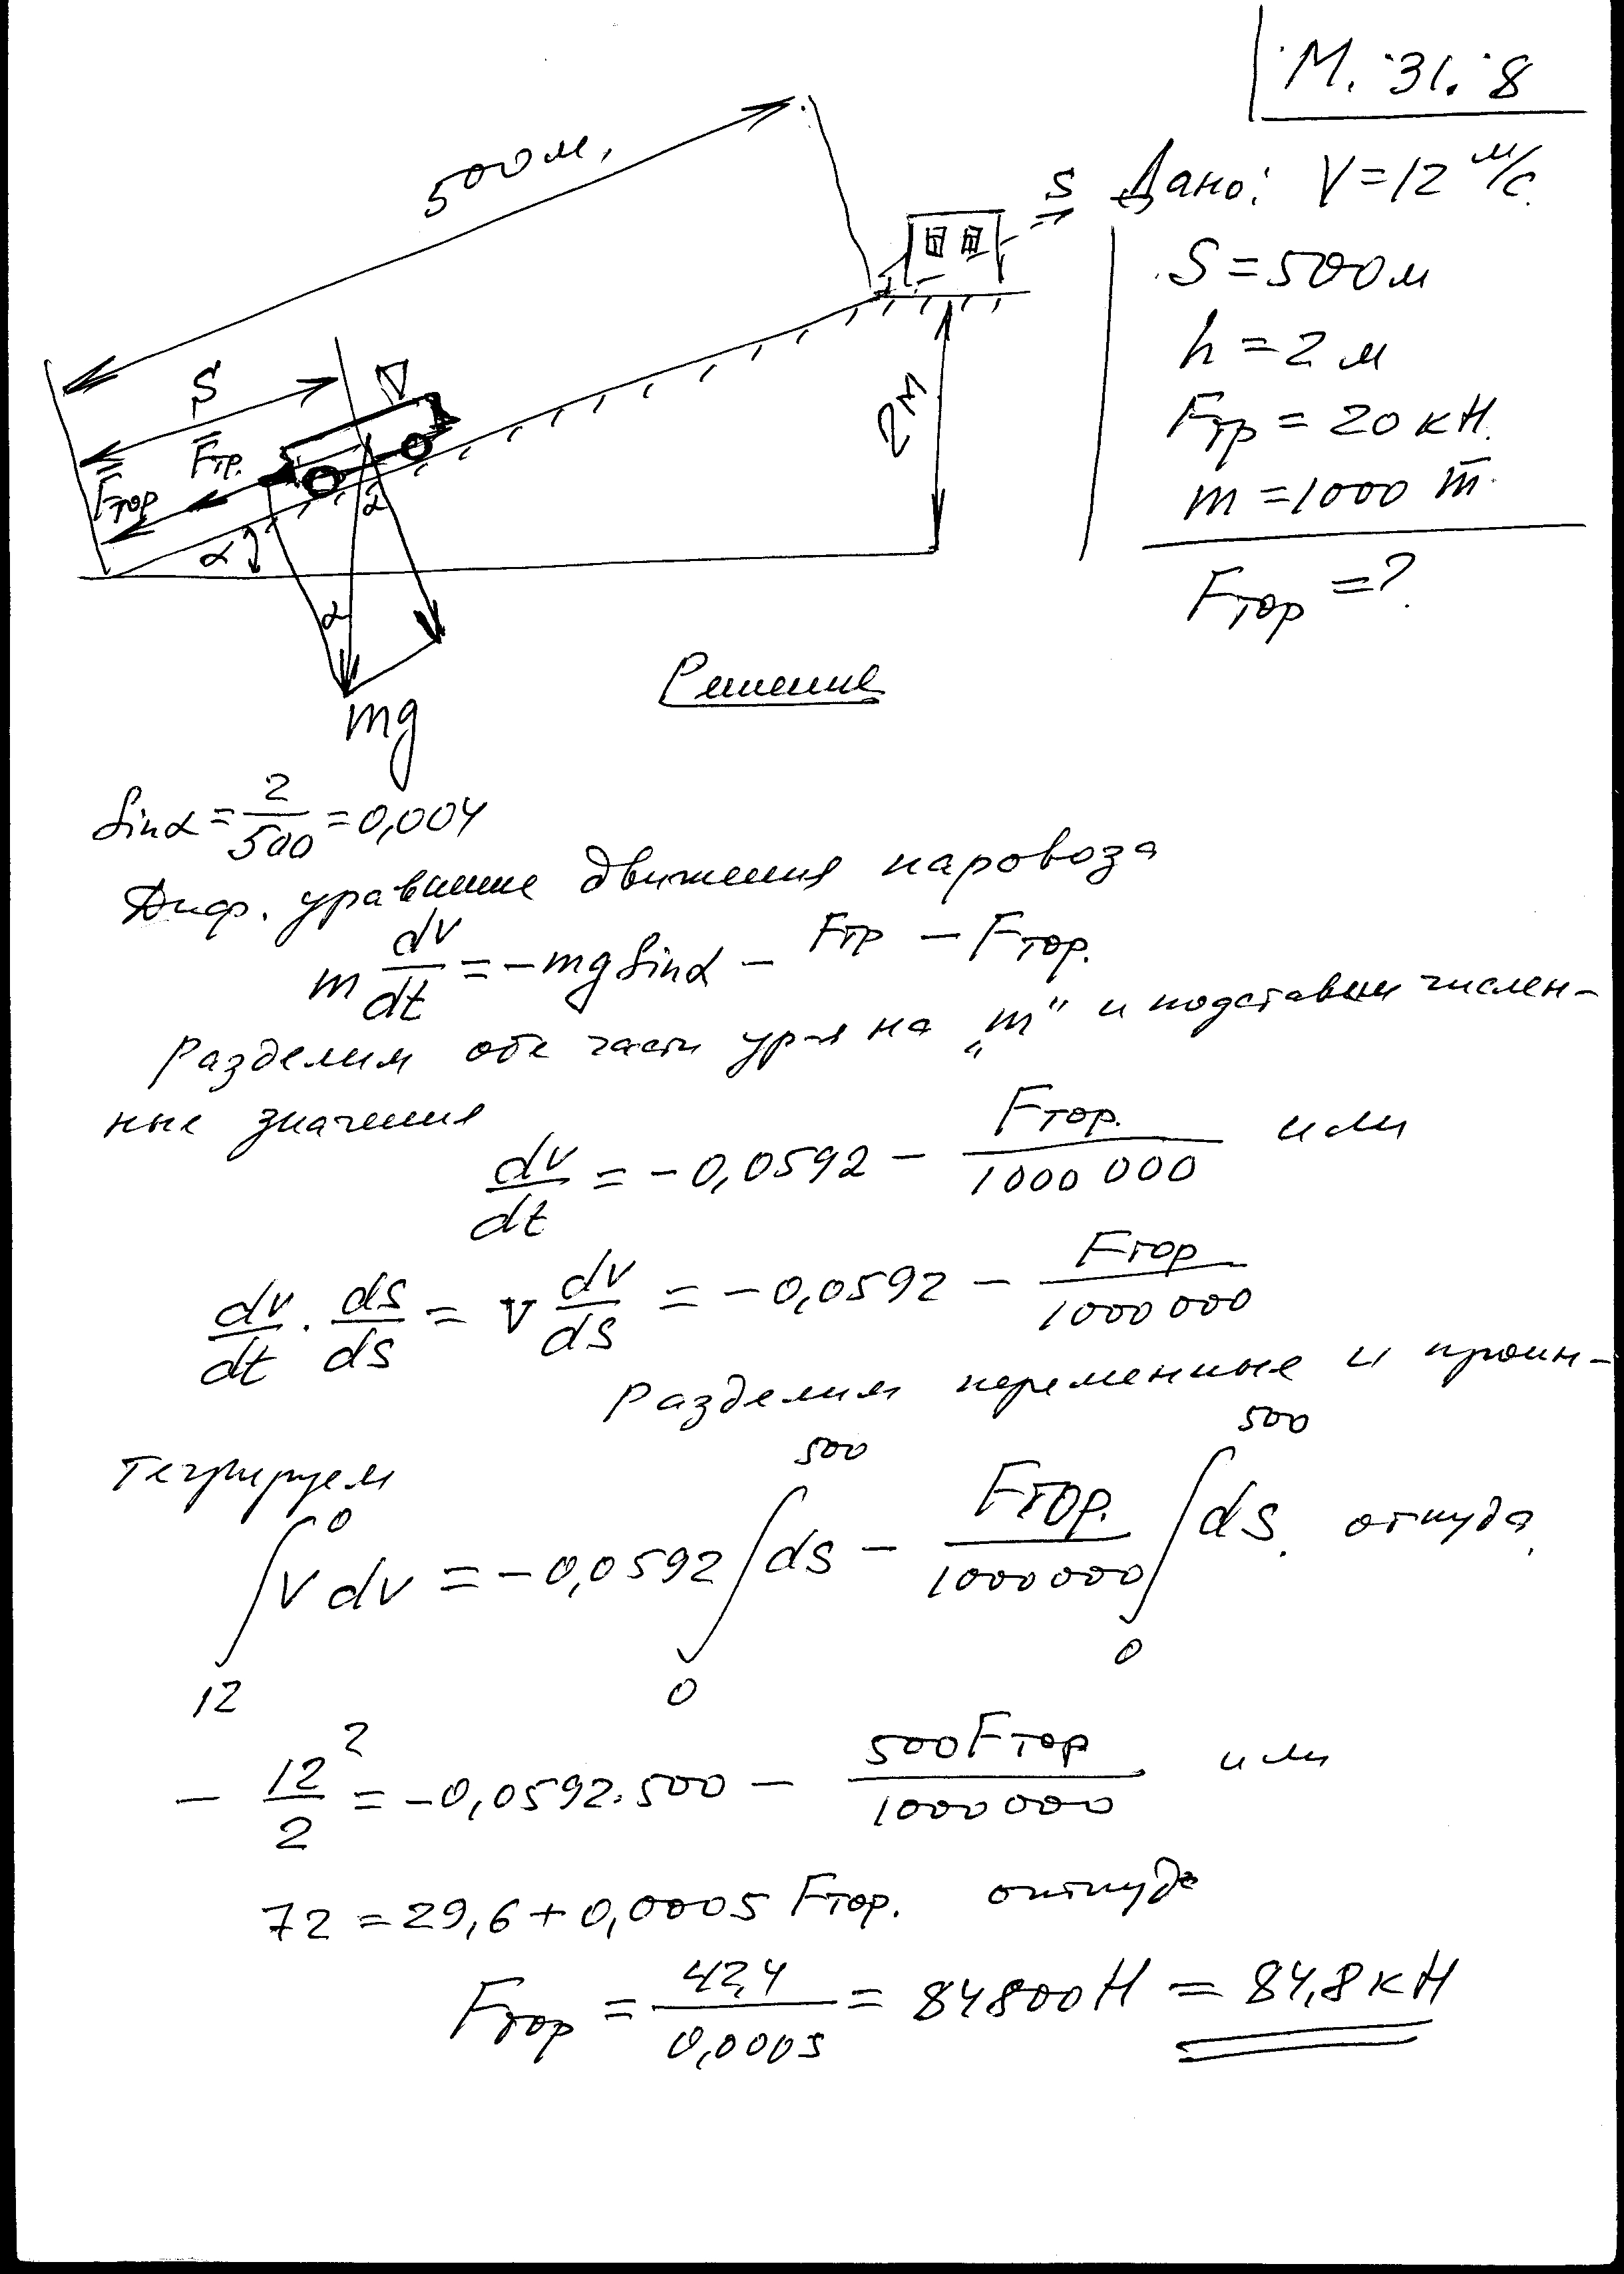 М. 31. 8
500м,
S Дано: V=12 м/с.
S=500м
h=2м
Fтр=20кН.
m=1000 т.
Fтор=?
S
V
Fтр.
Fтор
α
α
α
2м
mg
Решение
Sinα=2/500=0,004
Диф. уравнение движения паровоза
m dv/dt=-mgSinα - Fтр - Fтор.
Разделим обе части ур-я на „m" и подставим числен-
ные значения
dv/dt=-0,0592 - Fтор./1000 000 или
dv/dt · ds/ds = v dv/ds = -0,0592 - Fтор/1000 000
Разделим переменные и проин-
тегрируем
∫₁₂⁰ v dv = -0,0592 ∫₀⁵⁰⁰ ds - Fтор./1000 000 ∫₀⁵⁰⁰ ds. откуда
- 12²/2 = -0,0592·500 - 500Fтор/1000 000 или
72=29,6+0,0005 Fтор. откуда
Fтор = 42,4/0,0005 = 84800Н = 84,8кН